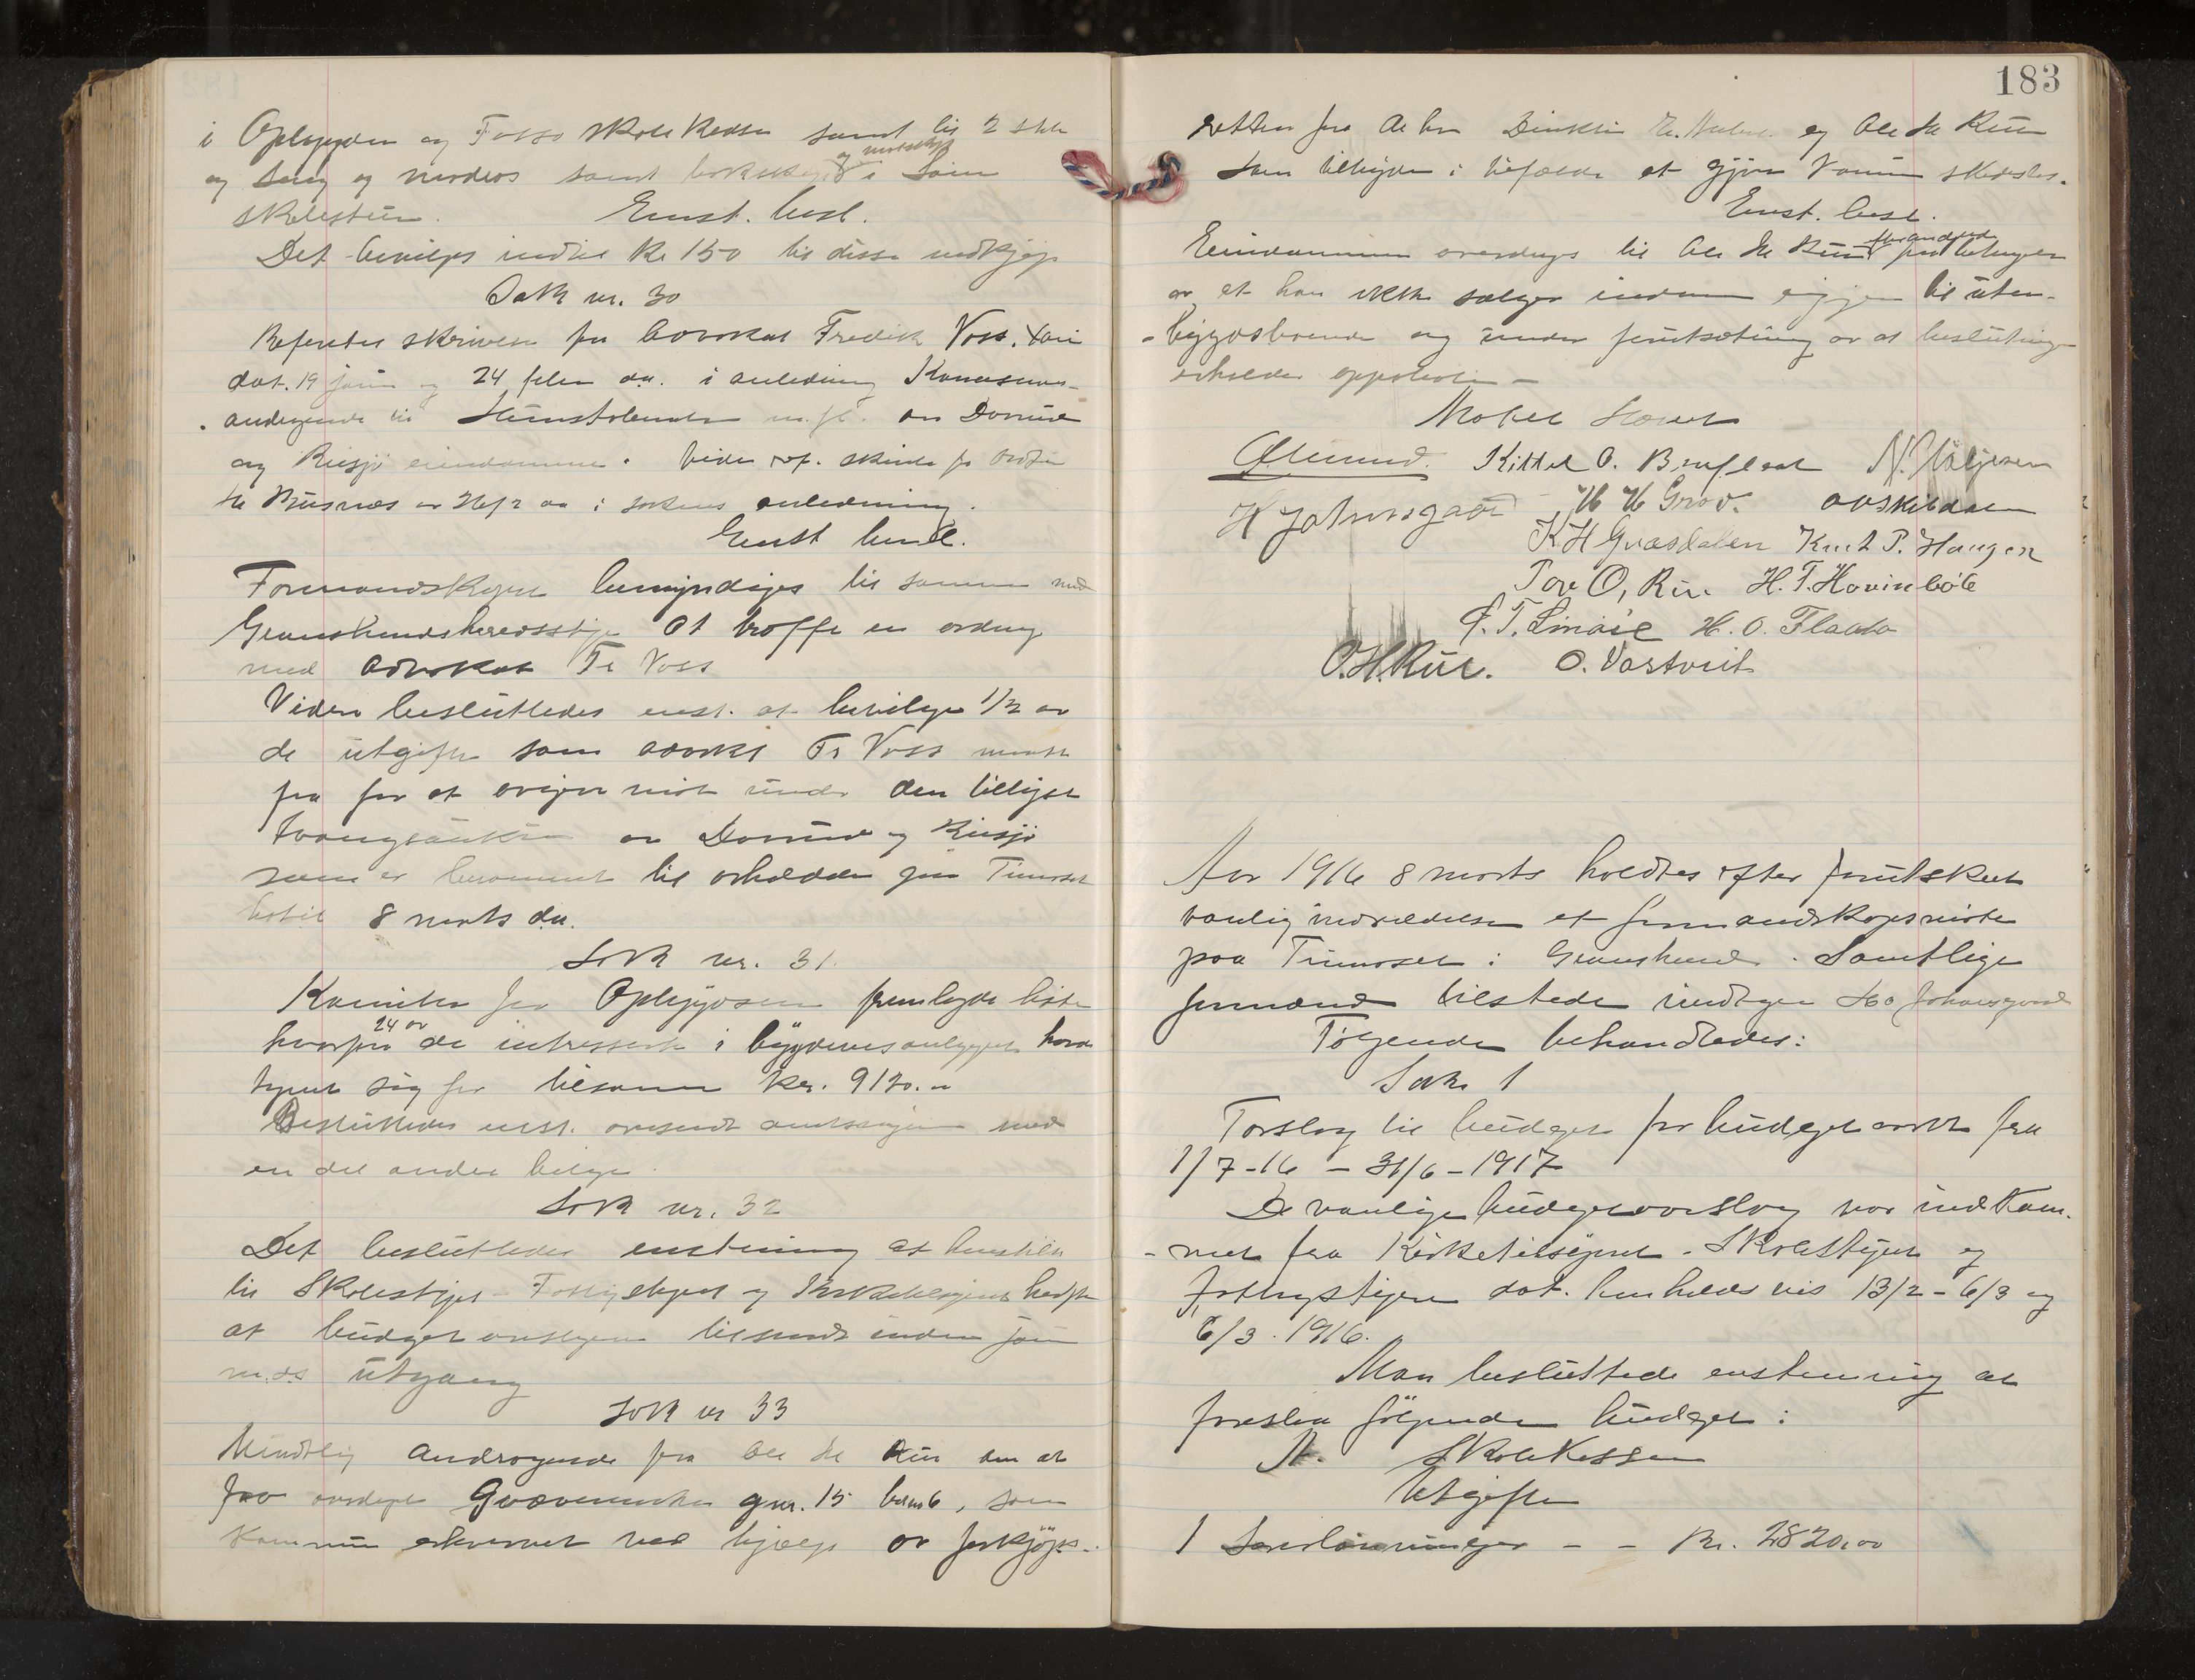 i Opbygden og Fosso skolekredse samt til 2 stk
og mostskap
og seng og madras samt i Søin
skolestue. Enst. besl.
Det bevilges indtil kr 150 til disse indkjøp
Sak nr. 30
Refertes skrivelse fra advokat Fredrik Voss, Kri
dat. 19 jan og 24 febr da. i anledning
angaaende m. fl. av Dorrud
og Riisjø eiendommene. Videre ref. skrivelse fra
H. Busnæs av 26/2 aa i sakens anledning.
Enst besl.
Formandskapet bemyndiges til sammen med
Gransherredsstyre at træffe en ordning
med advokat Fr Voss
Videre besluttedes enst. at bevilge 1/2 av
de utgifter som advokat Fr Voss maatte
faa for at avgive møte under den tillyste
tvangsauktion av Dorrud og Riisjø
som er berammet til avholdelse paa Tinnoset
hotel 8 marts da.
Sak nr. 31.
Komiteen for Opbygdsveien fremlagde liste
24 av
hvorpaa de interesserte i bygdeveisanlægget havde
tegnet sig for tilsammen kr. 9120.-
Besluttedes enst. oversendt amtsingeniøren med
en del andre bilage.
Sak nr. 32
Det besluttedes enstemmig at henstille
til Skolestyret - Fattigstyret og Kirketilsynet herefter
at budgetforslagene tilsendes inden jan
m.ds utgang
Sak nr 33
Mundtlig andragende fra Ole H. Rue om at
faa overdraget gnr. 15 brn 6, som
kommunen erhvervet ved hjælp av forkjøps-
183
retten fra A. hr Direktør og Ole H. Rue
som tilbyder i tilfælde at gjøre Kommunen skadesløs.
Enst. besl.
Eiendommen overdrages til Ole H Rue paa betingelse
av at han ikke sælger eiendommen igjen til uten-
-bygdsboende og under forutsætning av at beslutningen
erholder approbation -
Møtet hævet
Ølmund. Kittel O. Bergland N. Maljesen
H Johnsgaard H H Grov. O O Skibdalen
K H Græsdalen Knut P. Haugen
Tov O, Rue. H. T. Hovinbøle
P. T. Einaie H. O. Flaata
O. H. Rue. O. Vastveit
Aar 1916 8 marts holdtes efter forutskeet
vanlig indkaldelse et formandskapsmøte
paa Tinnoset i Gransherred. Samtlige
formænd tilstede undtagen H. O Johnsgaard
Følgende behandledes:
Sak 1
Forslag til budget for budgetaaret fra
1/7-16 - 31/6-1917
De vanlige budgetoverslag var indkom-
-met fra Kirketilsynet - Skolestyret og
Fattigstyret dat. henholdsvis 13/2 - 6/3 og
6/3. 1916.
Man besluttede enstemmig at
foreslaa følgende budget:
A. Skolekassen
Utgifter
1 Lærerlønninger - - Kr. 2820,00